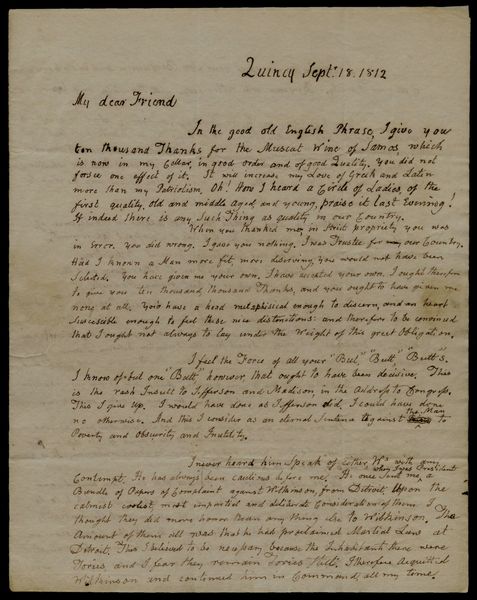 Quincy Sept. 18. 1812
My dear Friend
In the good old English Phrase, I give you
ten thousand Thanks for the Muscat Wine of Samos, which
is now in my Cellar, in good order and of good Quality. you did not
forsee one effect of it. It will increase my Love of Greek and Latin
more than my Patriotism. Oh! How I heard a Circle of Ladies, of the
first quality, old and middle aged and young, praise it last Evening!
If indeed there is any Such Thing as quality in our Country.
When you thanked me, in Strict propriety you was
in error. you did wrong. I gave you nothing. I was Trustee for our Country.
Had I known a Man more fit, more deserving you would not have been
Selected. You have given me your own. I have accepted your own. I ought therefore
to give you ten thousand, thousand Thanks, and you ought to have given me
none at all. You have a head metaphisical enough to discern, and an heart
Susceptible enough to feel these nice distinctions: and therefore to be convinced
that I ought not always to lay under the Weight of this great Obligation.
I feel the Force of all your "But," "Butt," "Butt"s.
I know of but one "Butt," however, that ought to have been decisive. This
is the rash Insult to Jefferson and Madison, in the Address to Congress.
This I give up. I would have done as Jefferson did. I could have done
no otherwise. And this I consider as an eternal Sentence against the Man to
Poverty and Obscurity and Inutility.
I never heard him Speak of Either with any
Contempt. He has always been cautious before me. He once Sent me, when I was President a
Bundle of Papers of Complaint against Wilkinson, from Detroit. Upon the
calmest coolest, most impartial and deliberate Consideration of them I
thought they did more honor than any thing else to Wilkinson. The
Amount of them all was that he had proclaimed Martial Law at
Detroit. This I believed to be necessary because the Inhabitants there were
Tories, and I fear they remain Tories Still. I therefore Acquitted
Wilkinson and continued him in Command, all my time.